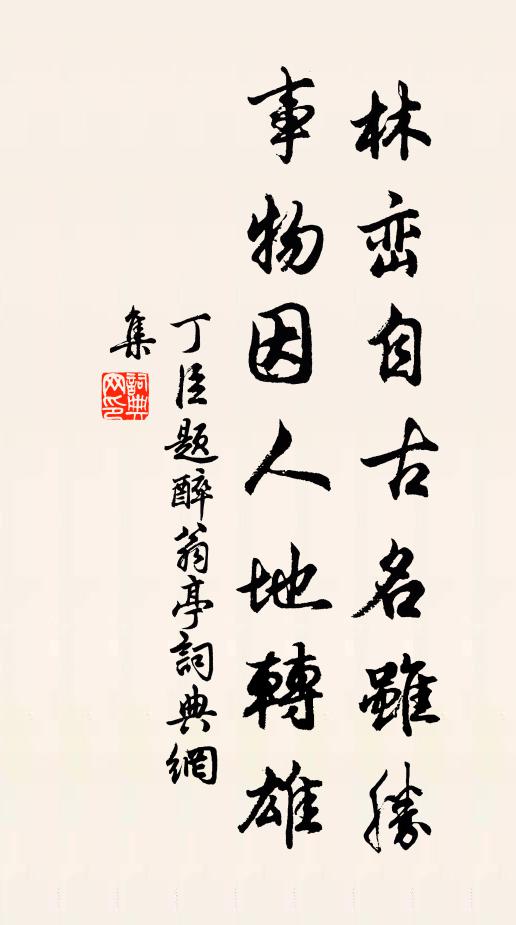 林巒自古名雖勝
事物因人地轉雄
丁臣題醉翁亭詞典網
集
詞典网印